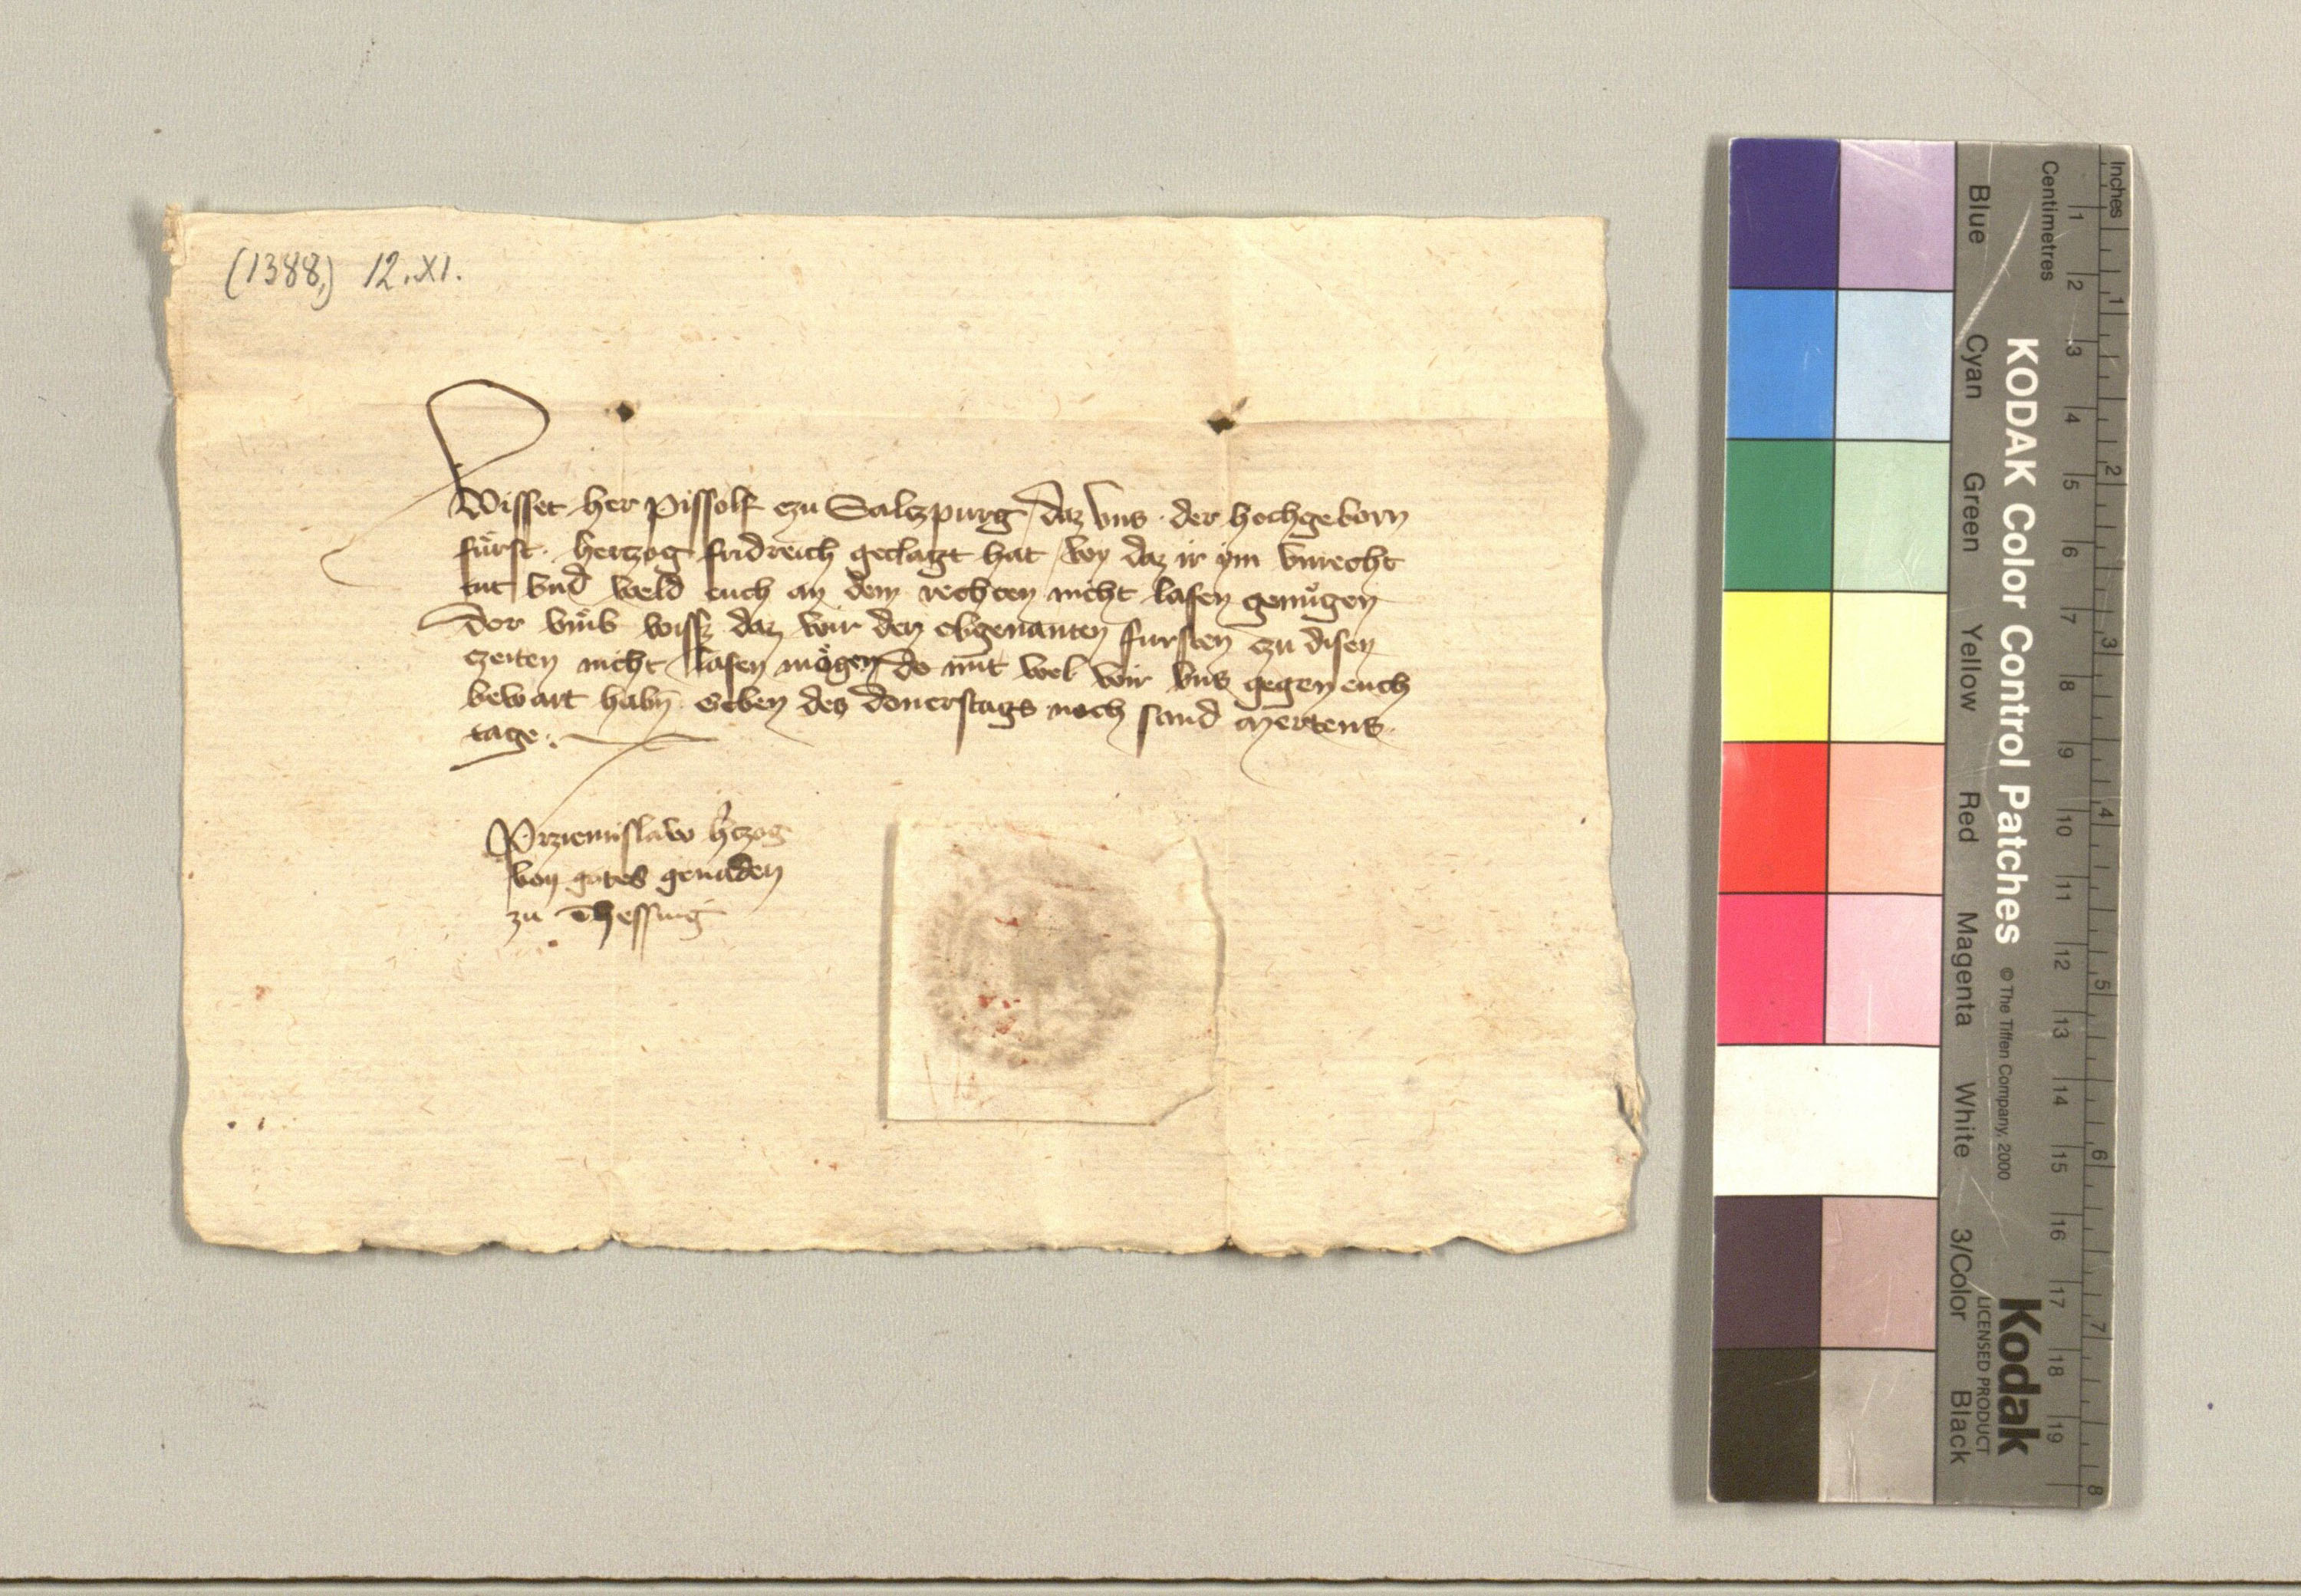 (1388,) 12.XI.
Wisset her Pissolf czu Salczpurg daz vns der hochgeborn
fürst herczog fridreich geclagt hat wy daz ir ym vnrecht
tut vnd weld euch an dem rechten nicht lasen genugen
Dor vmb wisst daz wir den obgenanten fursten czu disen
czeiten nicht lasen mögen do mit wel wir vns gegen euch
bewart habn Geben des donerstags noch sand Mertens
tage
Przemislaw hczog
von gotes genaden
zu Thessing
Inches
Centimetres
1 2 3 4 5 6 7 8
1 2 3 4 5 6 7 8 9 10 11 12 13 14 15 16 17 18 19
KODAK Color Control Patches © The Tiffen Company, 2000 Kodak
LICENSED PRODUCT
Blue Cyan Green Yellow Red Magenta White 3/Color Black